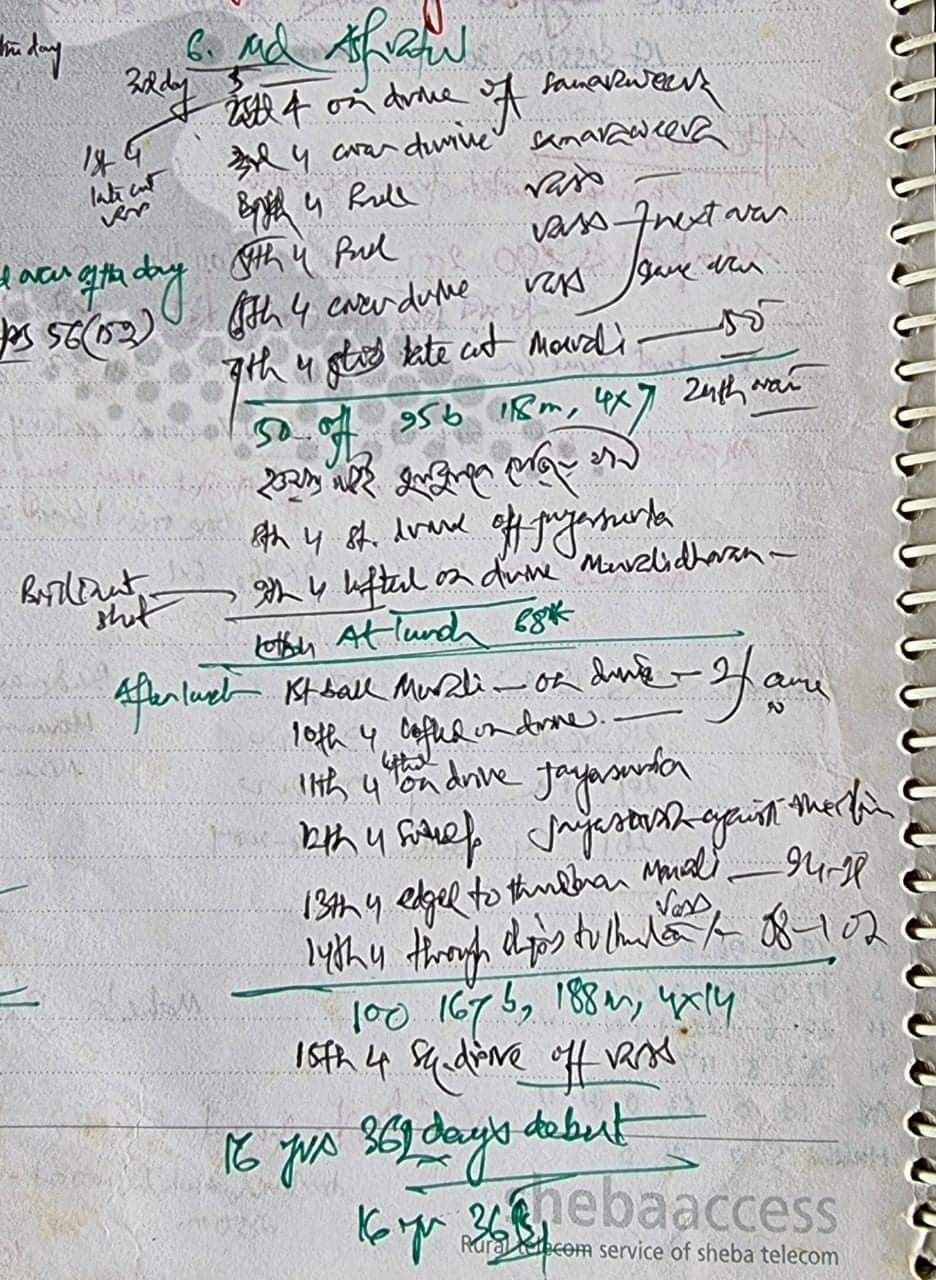 the day
6. Md Ashraful
3rd day
4 on drive off Samaraweera
1st 4
3rd 4 cover durive Samaraweera
late cut
Vass
4 Pull Vass
5th 4 Pul Vass next over
over of the day
6th 4 cover durive Vass same over
56(153)
7th 4 late cut Murali 50
24th over
50 off 95 b 118 m, 4x7
8th 4 st. drive off Jayasuria
Brilliant shot
9th 4 lofted on drive Muralidharan
At lunch 68*
After lunch 1st ball Murali - on drive - 2
10th 4 lofted on drive.
11th 4 on drive Jayasuria
12th 4 sweep Jayasuria against the
13th 4 edged to thirdman Murali 94-98
14th 4 through slips to Vass 98-102
100 167 b, 188 m, 4x14
15th 4 Sq. drive off Vass
16 yrs 361 days debut
16 yr
shebaaccess
Rural telecom service of sheba telecom